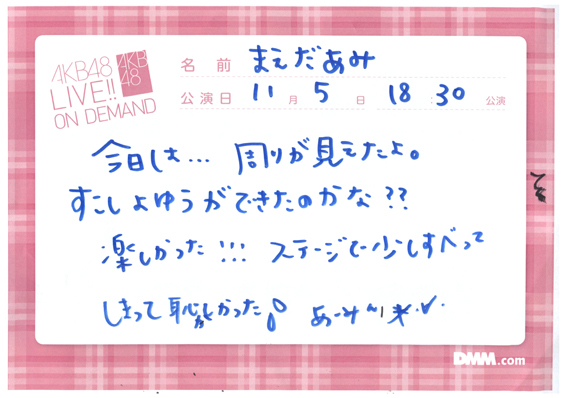 AKB48
LIVE!!
ON DEMAND
AKB
48
名前 まえだあみ
公演日 11月5日 18:30公演
今日は... 周りが見えたよ。
すこしよゆうができたのかな??
楽しかった!!! ステージで少しすべって
しまって恥ずかしかった
あーみぃ
DMM.com